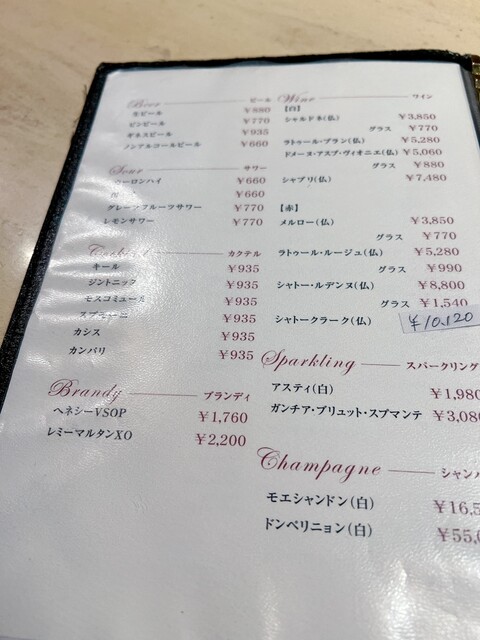 Beer ビール
生ビール ¥880
ビンビール ¥770
ギネスビール ¥935
ノンアルコールビール ¥660
Sour サワー
ウーロンハイ ¥660
¥660
グレープフルーツサワー ¥770
レモンサワー ¥770
Cocktail カクテル
キール ¥935
ジントニック ¥935
モスコミュール ¥935
スプモーニ ¥935
カシス ¥935
カンパリ ¥935
Brandy ブランディ
ヘネシーVSOP ¥1,760
レミーマルタンXO ¥2,200
Wine ワイン
【白】
シャルドネ(仏) ¥3,850
グラス ¥770
ラトゥール・ブラン(仏) ¥5,280
ドメーヌ・アスプ・ヴィオニエ(仏) ¥5,060
グラス ¥880
シャブリ(仏) ¥7,480
【赤】
メルロー(仏) ¥3,850
グラス ¥770
ラトゥール・ルージュ(仏) ¥5,280
グラス ¥990
シャトー・ルデンヌ(仏) ¥8,800
グラス ¥1,540
シャトークラーク(仏) ¥10,120
Sparkling スパークリング
アスティ(白) ¥1,980
ガンチア・ブリュット・スプマンテ ¥3,080
Champagne シャン
モエシャンドン(白) ¥16,5
ドンペリニョン(白) ¥55,0